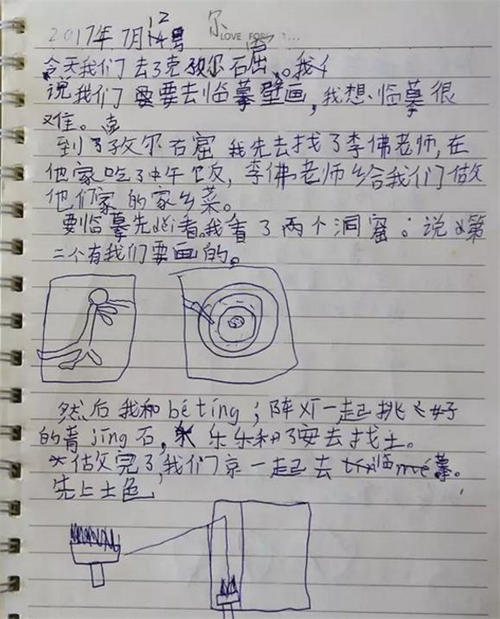 2017年7月12号
尔
LOVE FOR
窟
今天我们去了克孜尔石窟。我
说我们要去临摹壁画，我想临摹很
难。
到了孜尔石窟 我先去找了李佛老师，在
他家吃了中午饭，李佛老师给我们做
他们家的家乡菜。
要临摹先 看，我看了两个洞窟；说 第
二个有我们要画的。
然后我和béting；阵 一起挑 好
的青jing石，乐乐和 安去找土。
做完了，我们 一起去 临mó摹。
先上土色